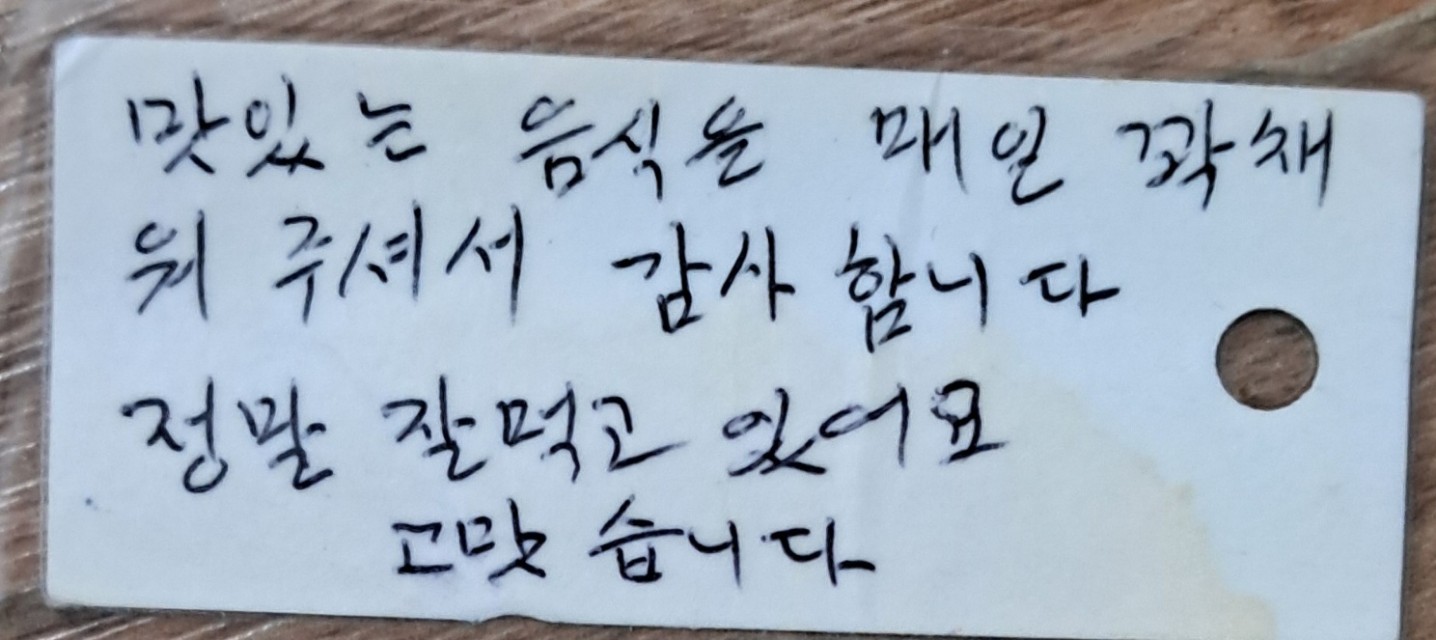 맛있는 음식을 매일 꽉채
워 주셔서 감사 합니다
정말 잘먹고 있어요
고맛습니다